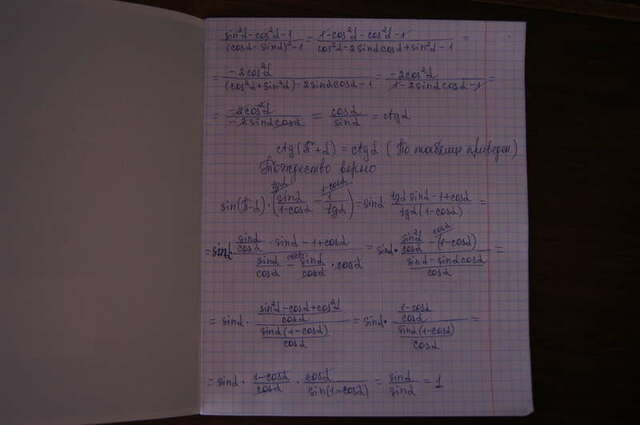 (sin²α - cos²α - 1)/(cosα - sinα)² - 1 = (1 - cos²α - cos²α - 1)/(cos²α - 2sinαcosα + sin²α - 1) =
= (-2cos²α)/((cos²α + sin²α) - 2sinαcosα - 1) = (-2cos²α)/(1 - 2sinαcosα - 1) =
= (-2cos²α)/(-2sinαcosα) = cosα/sinα = ctgα
ctg(π+α) = ctgα (По таблице привед)
Тождество верно
sin(π-α) · (sinα/(1-cosα) - 1/tgα) = sinα (tgα sinα - 1 + cosα)/(tgα(1-cosα)) =
= sinα (sinα/cosα · sinα - 1 + cosα)/(sinα/cosα - sinα/cosα · cosα) = sinα · (sin²α/cosα - (1-cosα))/((sinα - sinαcosα)/cosα) =
= sinα · ((sin²α - cosα + cos²α)/cosα)/((sinα(1-cosα))/cosα) = sinα · ((1-cosα)/cosα)/((sinα(1-cosα))/cosα) =
= sinα · (1-cosα)/cosα · cosα/(sin(1-cosα)) = sinα/sinα = 1